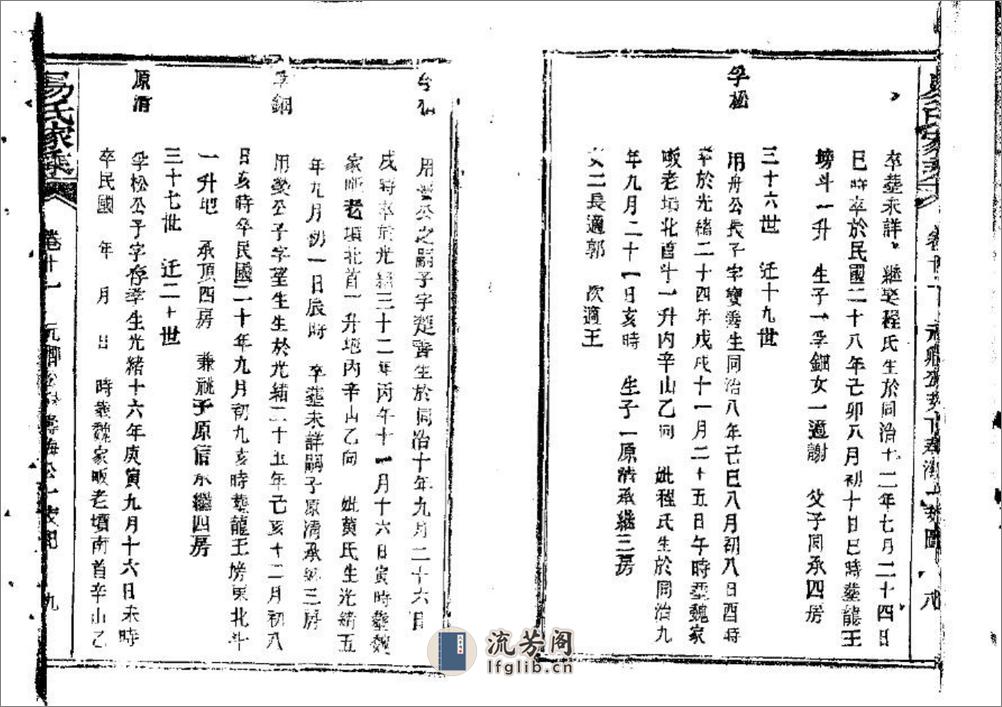 卒塟未詳 繼娶程氏生於同治十二年七月二十四日
巳時卒於民國二十八年己卯八月初十日巳時塟龍王
塝斗一升 生子一孚鈿女一適謝 父子同承四房
三十六世 迁十九世
孚松
用舟公長子字寶喬生同治八年己巳八月初八日酉時
卒於光緒二十四年戊戌十一月二十五日午時塟魏家
畈老墳北首斗一升内辛山乙向 妣程氏生於同治九
年九月二十一日亥時 生子一原清承繼三房
女二長適郭 次適王
用 公之嗣子字 生於同治十年九月二十六日
戌時卒於光緒三十二年丙午十一月十六日寅時塟魏
家畈老墳北首一升地内辛山乙向 妣黄氏生光緒五
年九月初一日辰時 卒塟未詳嗣子原清承 三房
孚鈿
用 公子字望生生於光緒二十五年己亥十二月初八
日亥時卒民國二十年九月初九亥時塟龍王塝東北斗
一升地 承頂四房 兼祧子原信承繼四房
三十七世 迁二十世
原清
孚松公子字存 生光緒十六年庚寅九月十六日未時
卒民國 年 月 日 時塟魏家畈老墳南首辛山乙
易氏家乘 卷十一 九
流芳阁
lfglib.cn